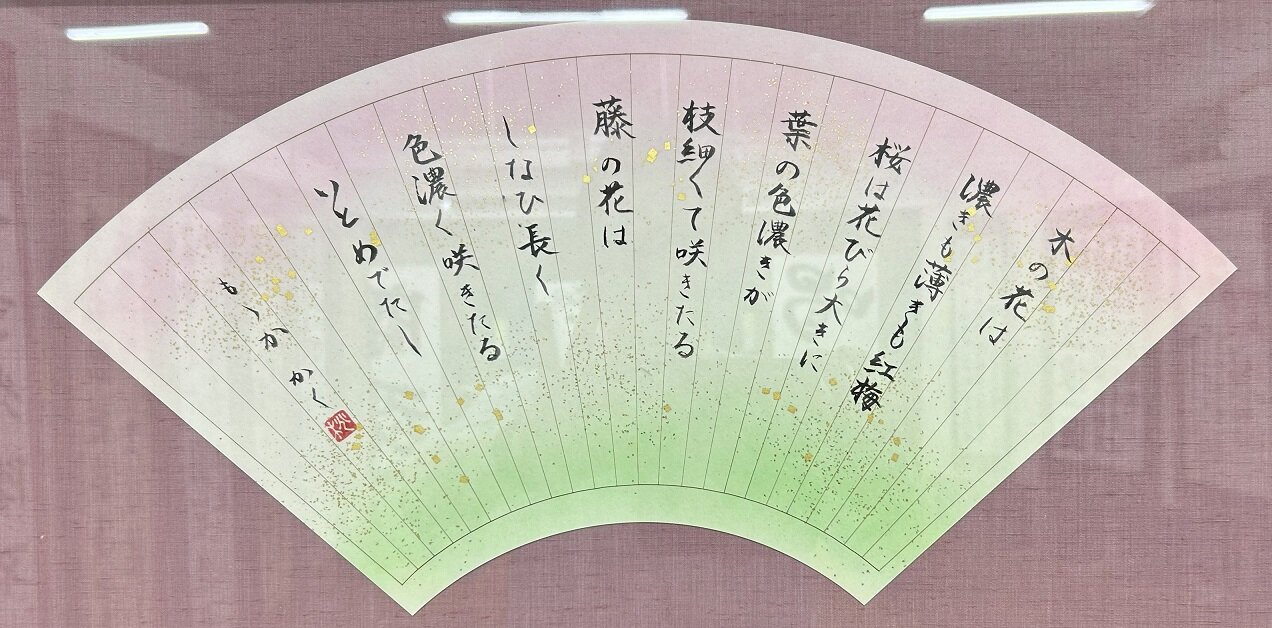 木の花は
濃きも薄きも紅梅
桜は花びら大きに
葉の色濃きが
枝細くて咲きたる
藤の花は
しなひ長く
色濃く咲きたる
いとめでたし
もゝか かく